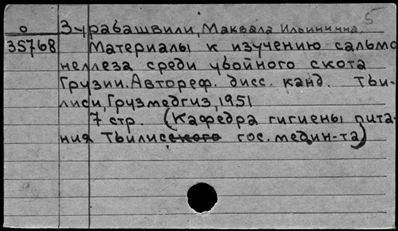 5
о Зурабашвили, Маквала Ильинична
35768 Материалы к изучению сальмо
неллеза среди убойного скота
Грузии. Автореф. дисс. канд. Тби-
лиси, Грузмедгиз, 1951
7 стр. (Кафедра гигиены пита-
ния Тбилисского гос. медин-та)